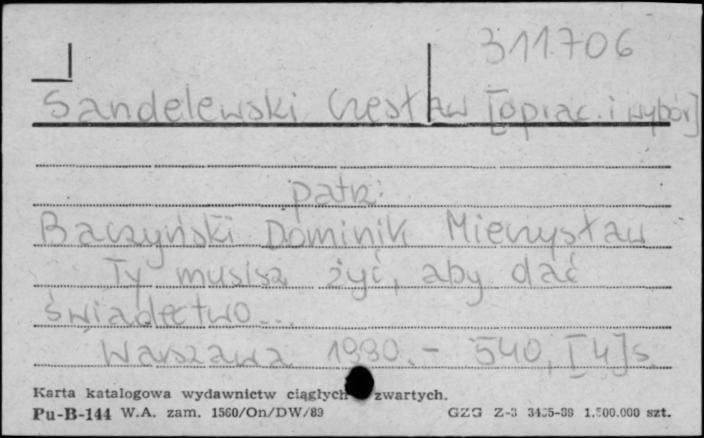 311706
Sandelewski Czesław [oprac. i wybór]
patrz:
Baczyński Dominik Mieczysław
Ty musisz żyć, aby dać
świadectwo...
Warszawa 1990. - 540, [4] s.
Karta katalogowa wydawnictw ciągłych zwartych.
Pu-B-144 W.A. zam. 1560/On/DW/89 GZG Z-3 3435-88 1.500.000 szt.